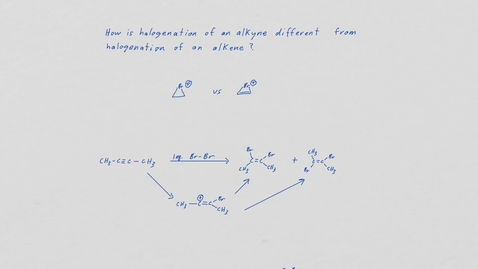 How is halogenation of an alkyne different from
halogenation of an alkene?
Br ⊕ vs Br ⊕
CH₃-C≡C-CH₃ 1eq. Br-Br Br Br C=C CH₃ CH₃ + CH₃ Br C=C Br CH₃
CH₃-C⊕=C Br CH₃